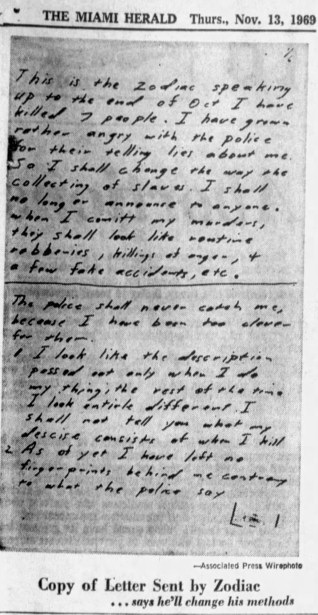 THE MIAMI HERALD Thurs., Nov. 13, 1969
This is the Zodiac speaking
up to the end of Oct I have
killed 7 people. I have grown
rather angry with the police
for their telling lies about me.
So I shall change the way the
collecting of slaves. I shall
no longer announce to anyone.
when I comitt my murders,
they shall look like routine
robberies, killings of anger, +
a few fake accidents, etc.
The police shall never catch me,
because I have been too clever
for them.
1 I look like the description
passed out only when I do
my thing, the rest of the time
I look entirle different. I
shall not tell you what my
descise consists of when I kill
2 As of yet I have left no
fingerprints behind me contrary
to what the police say
—Associated Press Wirephoto
Copy of Letter Sent by Zodiac
. . . says he'll change his methods